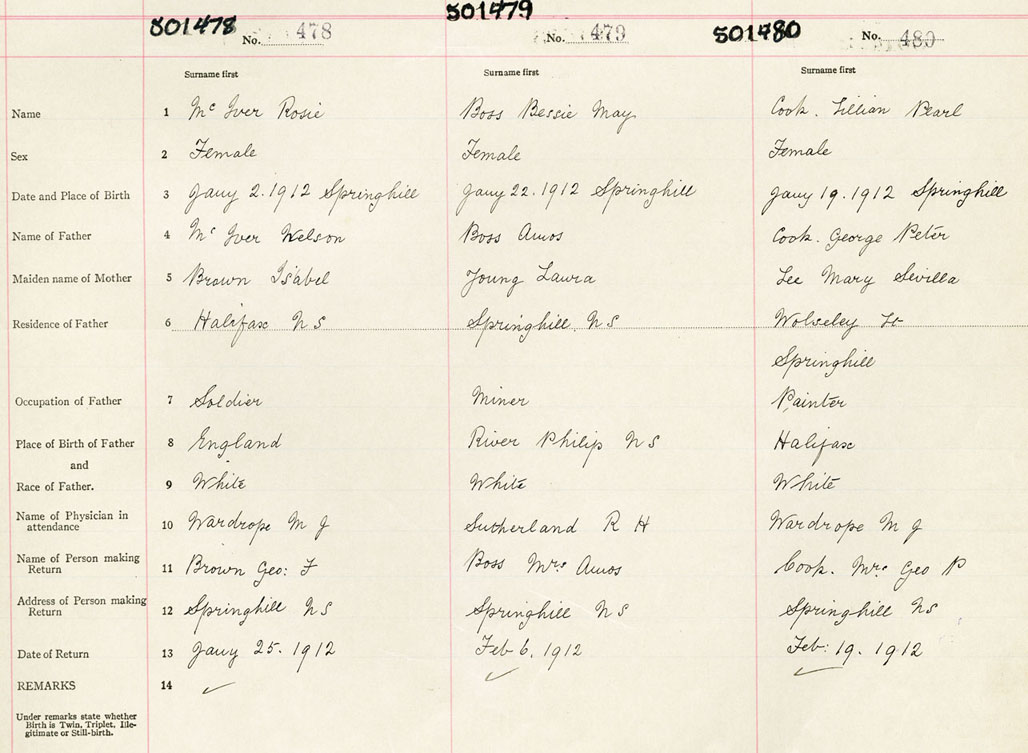 501478 No. 478 501479 No. 479 501480 No. 480
Surname first Surname first Surname first
Name 1 Mc Iver Rosie Boss Bessie May Cook. Lillian Pearl
Sex 2 Female Female Female
Date and Place of Birth 3 Jany 2. 1912 Springhill Jany 22. 1912 Springhill Jany 19. 1912 Springhill
Name of Father 4 Mc Iver Welson Boss Amos Cook. George Peter
Maiden name of Mother 5 Brown Isabel Young Laura Lee Mary Sevilla
Residence of Father 6 Halifax N S Springhill. N S Wolseley St
Springhill
Occupation of Father 7 Soldier Miner Painter
Place of Birth of Father 8 England River Philip N S Halifax
and
Race of Father. 9 White White White
Name of Physician in
attendance 10 Wardrope M J Sutherland R H Wardrope M J
Name of Person making
Return 11 Brown Geo: F Boss Mrs Amos Cook. Mrs Geo P
Address of Person making
Return 12 Springhill N S Springhill N S Springhill N S
Date of Return 13 Jany 25. 1912 Feb 6. 1912 Feb: 19. 1912
REMARKS 14
Under remarks state whether
Birth is Twin, Triplet, Ille-
gitimate or Still-birth.